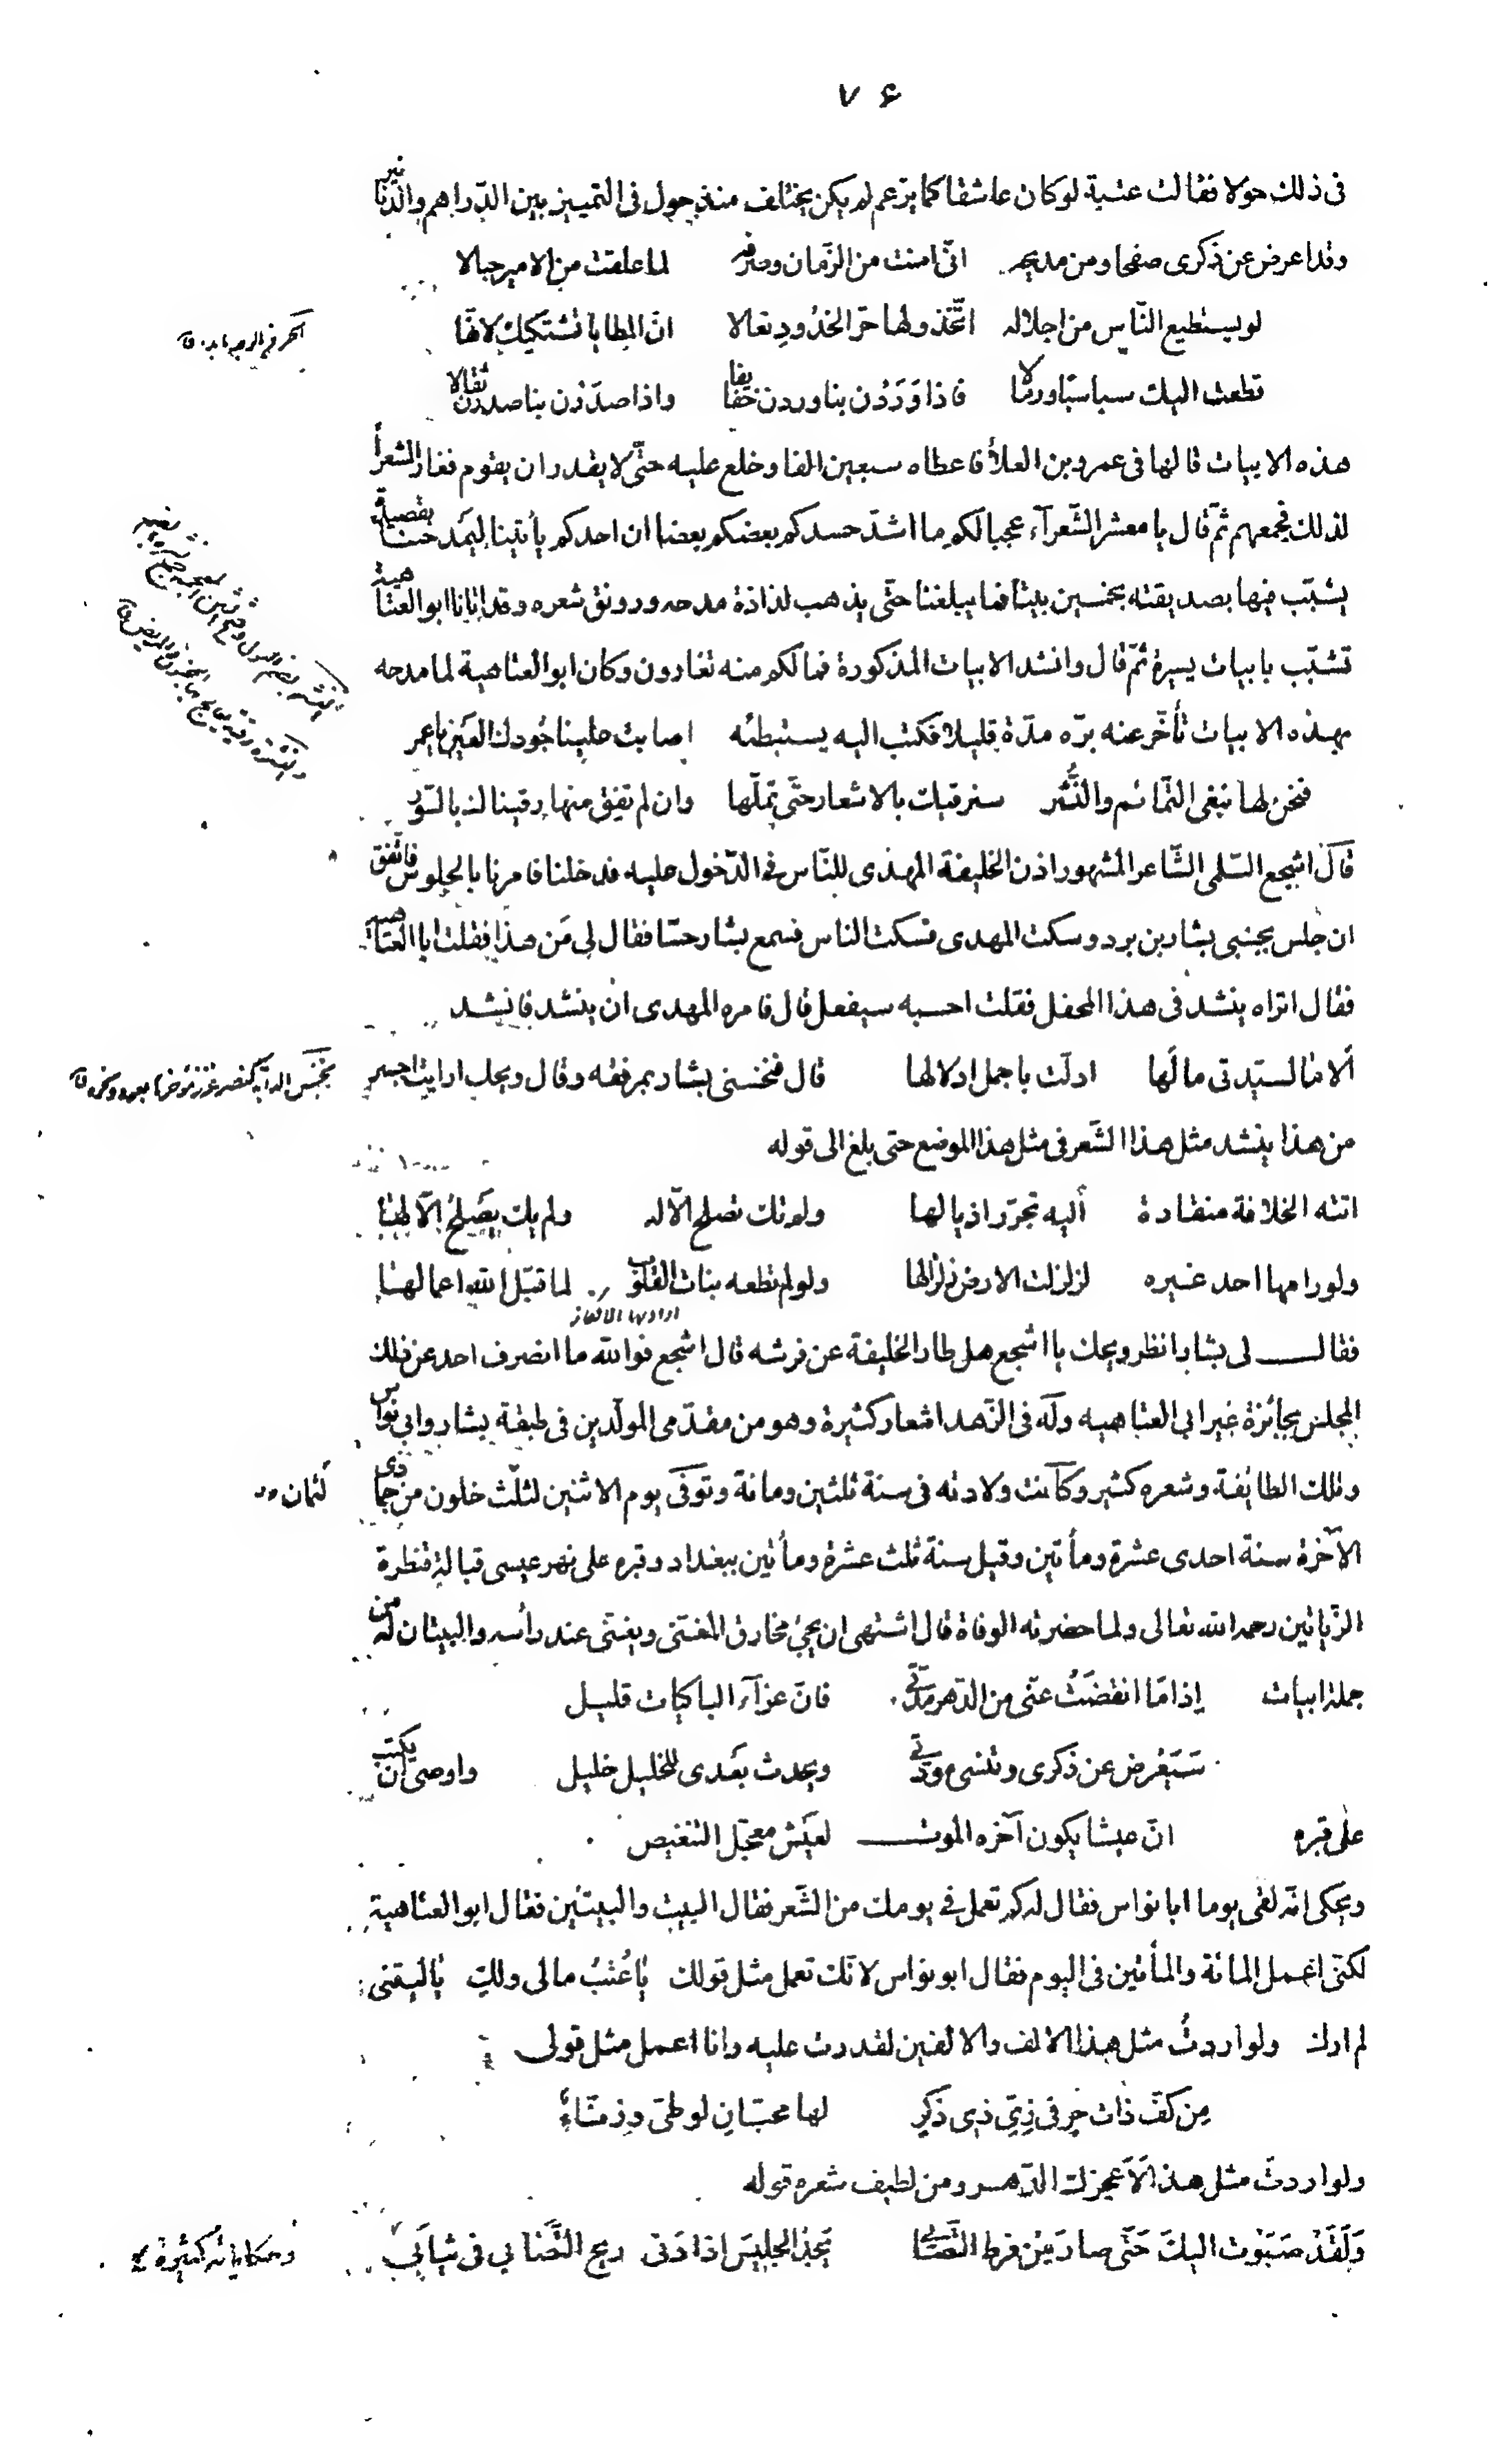 ٧۶
فى ذلك حولا فقالت عتبة لو كان عاشقا كما يزعم لم يكن يختلف منذ حول فى التمييز بين الدّراهم والدّنانير
وقد اعرض عن ذكرى صفحا ومن مديحه انّى امنت من الزّمان وصرفه لما علقت من الامير حبالا
لو يستطيع النّاس من اجلاله اتّخذوا لها حرّ الخدُودِ نعالا انّ المطايا تشتكيك لانّها
قطعت اليك سباسبًا ورمالا فاذا وَرَدْن بنا وردن خفايفا واذا صدَرْن بنا صدرن ثقالا
هذه الابيات قالها فى عمرو بن العلأ فاعطاه سبعين الفا وخلع عليه حتّى لا يقدر ان يقوم فغار الشعرأ
لذلك فجمعهم ثمّ قال يا معشر الشّعرآء عجبا لكم ما اشدّ حسدكم بعضكم بعضا ان احدكم يأتينا ليمدحنا بقصيدة
يشبّب فيها بصديقته بخمسين بيتا فما يبلغنا حتّى يذهب لذاذة مدحه ورونق شعره وقد اتانا ابو العتاهية
تشبّب بابيات يسيرة ثمّ قال وانشد الابيات المذكورة فما لكم منه تغارون وكان ابو العتاهية لما مدحه
بهذه الابيات تأخّر عنه برّه مدّة قليلا فكتب اليه يستبطئه اصابت علينا جُودك العَين يا عمر
فنحن لها نبغى التّمائم والنُّشر سنرقيك بالاشعار حتّى تملّها وان لم تفق منها رقيناك بالسّور
قالَ اشجع السّلمى الشّاعر المشهور اذن الخليفة المهدى للنّاس فى الدّخول عليه فدخلنا فامرنا بالجلوس فاتّفق
ان جلس بجنبى بشار بن برد وسكت المهدى فسكت الناس فسمع بشار حسّا فقال لى مَن هذا فقلت ابا العتاهيه
فقال اتراه ينشد فى هذا المحفل فقلت احسبه سيفعل قال فامره المهدى ان ينشد فانشد
ألا ما لسيّدتى ما لَها ادلّت باجمل ادلالها قال فنخسنى بشار بمرفقه وقال ويحك ارايت اجسر
من هذا ينشد مثل هذا الشّعر فى مثل هذا الموضع حتى بلغ الى قوله
اتته الخلافة منقادة أليه تجرّر اذيالها ولم تك تصلح الّا له ولم يك يَصلُح الّا لها
ولو رامها احد غيره لزلزلت الارض زلزالها ولو لم تطعه بنات القلوب لما قبّل الله اعمالها
فقال لى بشار انظر ويحك يا اشجع هل طار الخليفة عن فرشه قال اشجع فوالله ما انصرف احد عن ذلك
المجلس بجائزة غير ابى العتاهيه ولَه فى الزّهد اشعار كثيرة وهو من مقدّمى المولّدين فى طبقة بشار وابى نواس
وتلك الطائفة وشعره كثير وكآنت ولادته فى سنة ثلثين ومائة وتوفّى يوم الاثنين لثلث خلون من جمادى
الآخرة سنة احدى عشرة ومأتين وقيل سنة ثلث عشرة ومأتين ببغداد وقبره على نهر عيسى قبالة قنطرة
الزّياتين رحمه الله تعالى ولما حضرته الوفاة قال اشتهى ان يجئ مخارق المغنّى ويغنّى عند رأسه والبيتان له من
جملة ابيات اِذا مَا انقضَتْ عنّى من الدّهر مدّتى فانّ عزآء الباكيات قليل
سَتَعْرض عن ذكرى وتنسى مودّتى ويحدث بعَدى للخليل خليل واوصى ان يكتب
على قبره انّ عيشا يكون آخره الموت لعيَش معجّل التنغيص
ويحكى انّه لقى يوما ابا نواس فقال له كم تعمل فى يومك من الشّعر فقال البيت والبيتَين فقال ابو العتاهية
لكنّى اعمل المائة والمأتين فى اليوم فقال ابو نواس لانّك تعمل مثل قولك يا عُتْبُ مالى ولكِ ياليتنى
لم ارك ولو اردتُ مثل هذا الالف والالفين لقدرت عليه وانا اعمل مثل قولى
مِن كفّ ذات حِر فى زىّ ذى ذكرٍ لها محبّانِ لوطىّ وزنّاءٌ
ولو اردتَ مثل هذا لَاَعجزك الدّهر ومن لطيف شعره قوله
وَلَقَدْ صَبَوْت اليكَ حَتّى صار مِنْ فرط التّصابى يَجِدُ الجليسُ اذا دَنى ريح التَّصَابى فى ثيابى
ارادبها الالغاز
لثمان
وحكاياته كثيرة